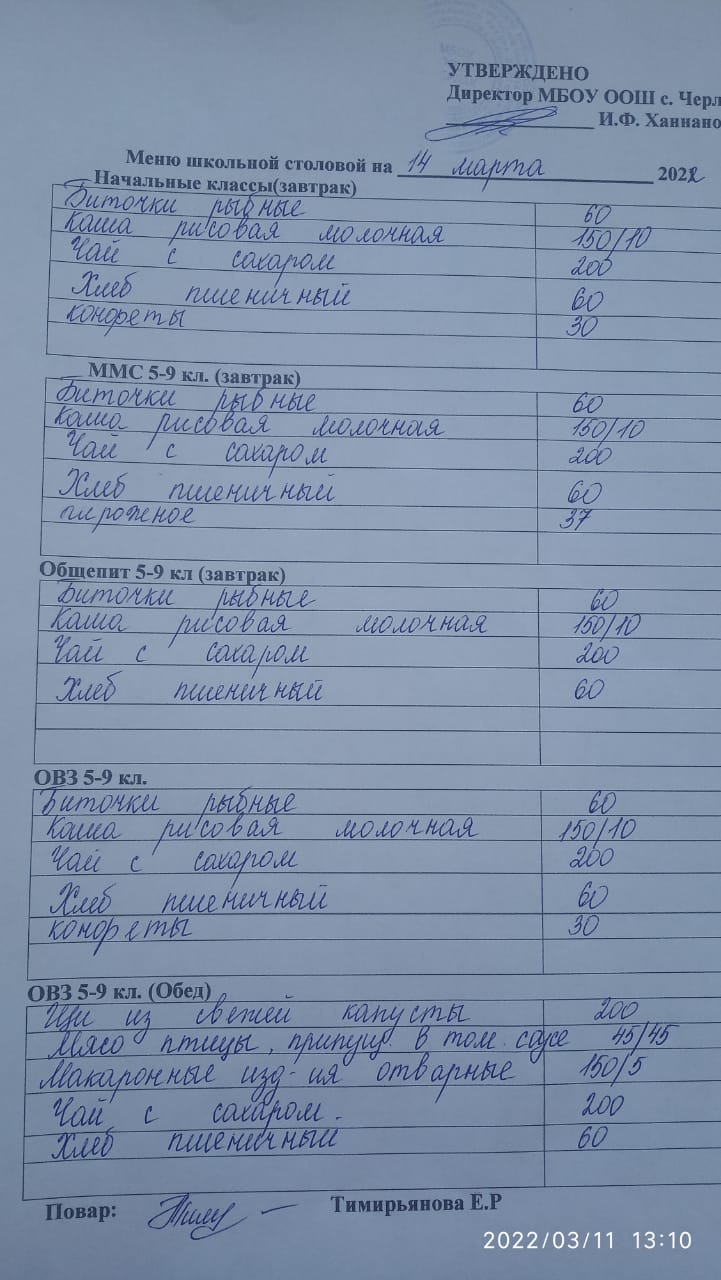 УТВЕРЖДЕНО
Директор МБОУ ООШ с. Черл
И.Ф. Ханнано
Меню школьной столовой на 14 марта 2022
Начальные классы(завтрак)
Биточки рыбные 60
Каша рисовая молочная 150/10
Чай с сахаром 200
Хлеб пшеничный 60
конфеты 30
ММС 5-9 кл. (завтрак)
Биточки рыбные 60
Каша рисовая молочная 150/10
Чай с сахаром 200
Хлеб пшеничный 60
пирожное 37
Общепит 5-9 кл (завтрак)
Биточки рыбные 60
Каша рисовая молочная 150/10
Чай с сахаром 200
Хлеб пшеничный 60
ОВЗ 5-9 кл.
Биточки рыбные 60
Каша рисовая молочная 150/10
Чай с сахаром 200
Хлеб пшеничный 60
конфеты 30
ОВЗ 5-9 кл. (Обед)
Щи из свежей капусты 200
Мясо птицы, припущ. в том. соусе 45/45
Макаронные изд-ия отварные 150/5
Чай с сахаром. 200
Хлеб пшеничный 60
Повар: Тимирьянова Е.Р
2022/03/11 13:10